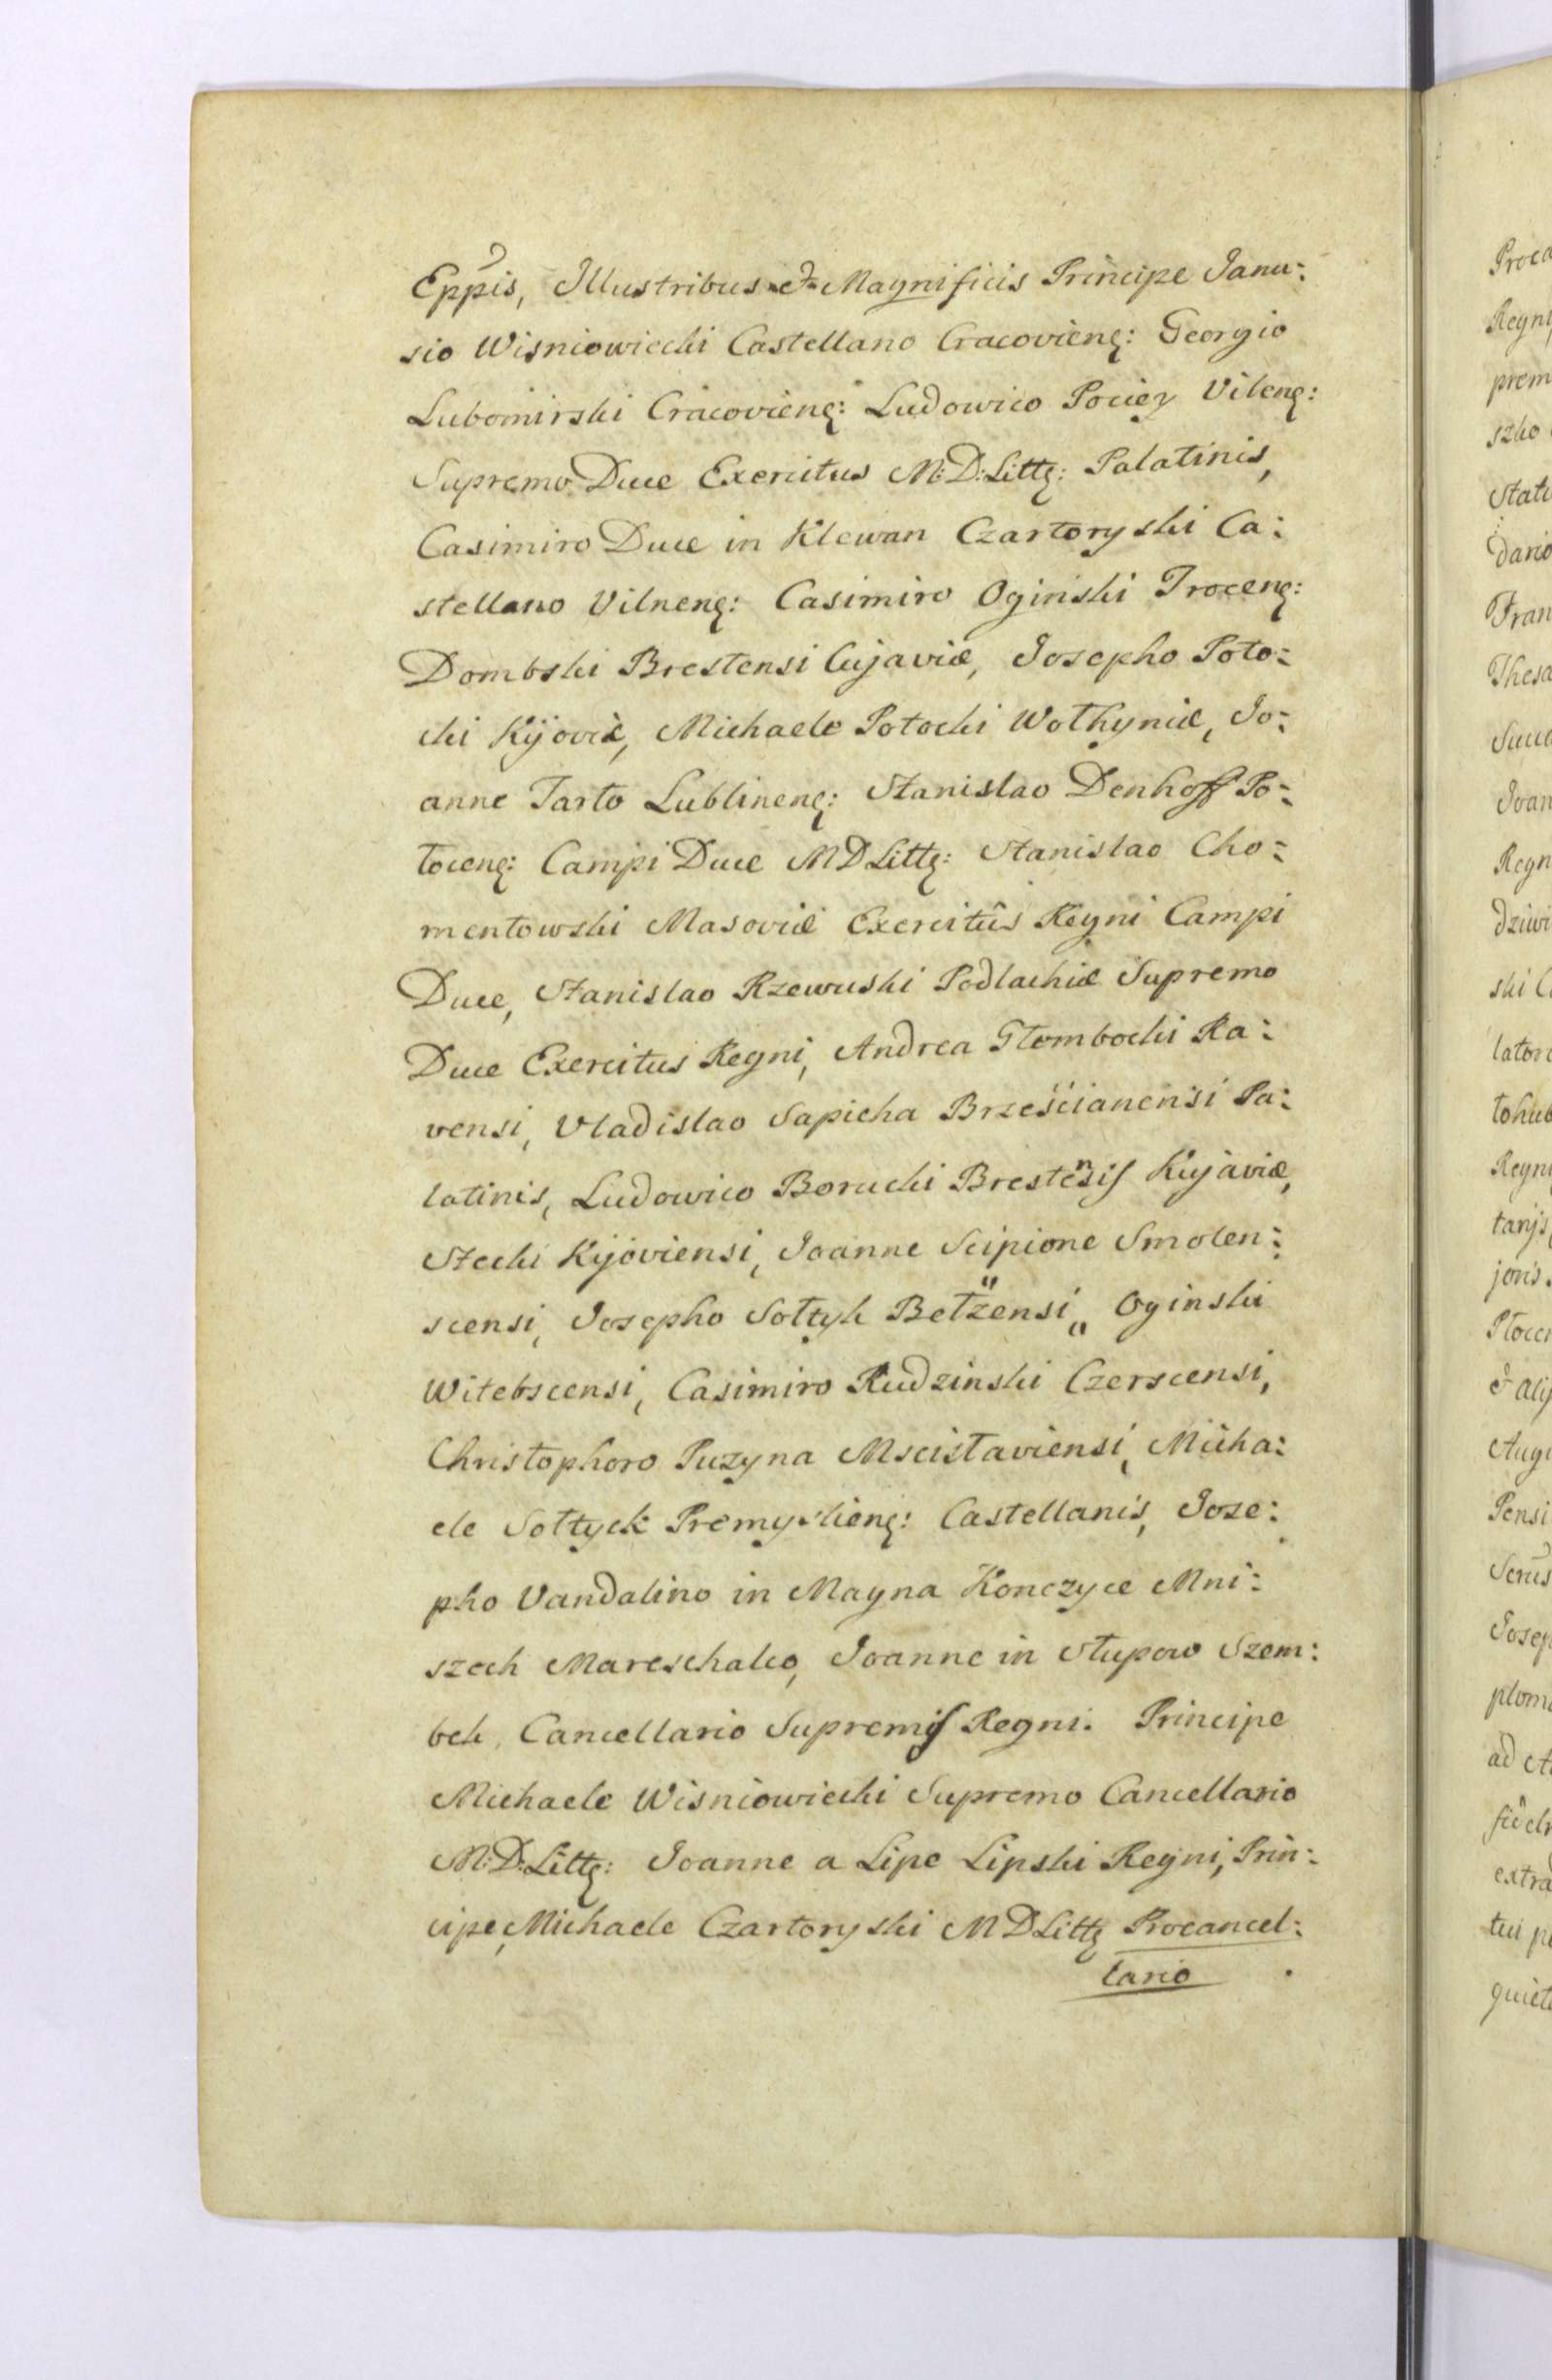 Eppis, Illustribus & Magnificis Principe Janu:
sio Wisniowiecki Castellano Cracovieng: Georgio
Lubomirski Cracovieng: Ludowico Pociey Vileng:
Supremo Duce Exercitus M:D:Littę: Palatinis,
Casimiro Duce in Klewan Czartoryski Ca:
stellano Vilneng: Casimiro Oginski Troceng:
Dombski Brestensi Cujaviæ, Josepho Poto:
cki Kijoviæ, Michaele Potocki Wołhyniæ, Jo:
anne Tarło Lublineng: Stanislao Denhoff Po:
łoceng: Campi Duce MDLittę: Stanislao Cho:
mentowski Masoviæ Exercitûs Regni Campi
Duce, Stanislao Rzewuski Podlachiæ Supremo
Duce Exercitus Regni, Andrea Głembocki Ra:
vensi, Vladislao Sapieha Brześcianensi Pa:
latinis, Ludowico Borucki Brestensis Kujaviæ,
Stecki Kijoviensi, Joanne Scipione Smolen:
scensi, Josepho Sołtyk Bełzensi „ Oginski
Witebscensi, Casimiro Rudzinski Czerscensi,
Christophoro Puzyna Mscisłaviensi, Micha:
ele Sołtyck Premyslieng: Castellanis, Jose:
pho Vandalino in Magna Konczyce Mni:
szech Mareschalco, Joanne in Słupow Szem:
bek, Cancellario Supremis Regni. Principe
Michaele Wisniowiecki Supremo Cancellario
M:D:Littę: Joanne a Lipe Lipski Regni, Prin:
cipe, Michaele Czartoryski MDLittę Procancel:
lario
Proca
Regni
prem
szko
Stati
dario
Fran
Thesa
Succa
Joan
Regn
dziwi
ski C
latore
tohub
Regni
tanjs
joris
Płocen
& alij
Augu
Pensi
Josep
plom
ad A
extra
tui p
quiet